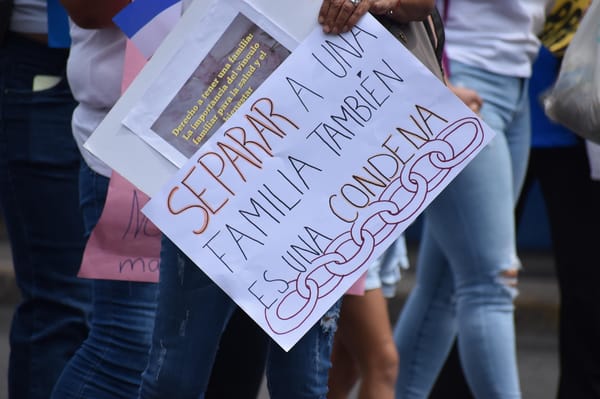 Derecho a tener una familia:
La importancia del vínculo
familiar para la salud y el
bienestar
SEPARAR A UNA
FAMILIA TAMBIÉN
ES UNA CONDENA